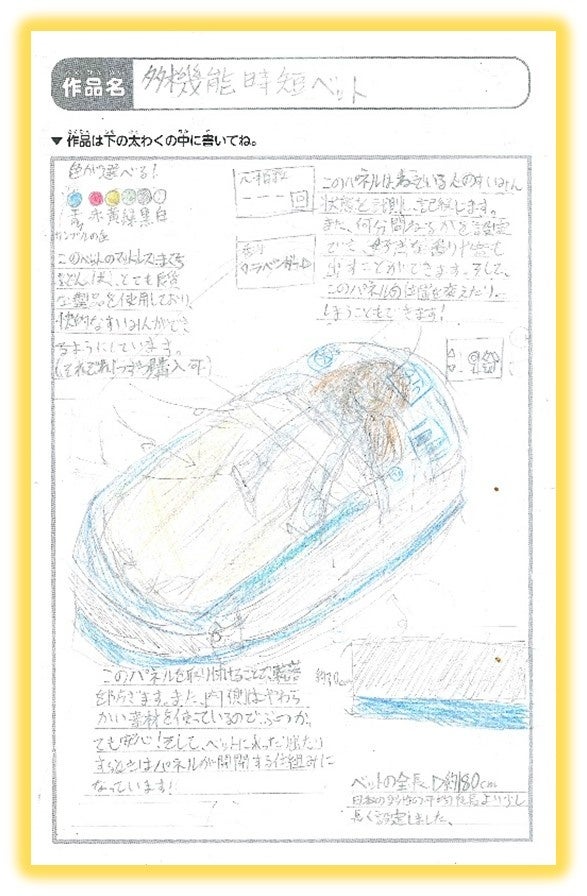 作品名
多機能時短ベット
▼作品は下の太わくの中に書いてね。
色が選べる!
青 赤 黄 緑 黒 白
サンプルの色
このベットのマットレス、まくら
などんは、とても良質
な製品を使用しており、
快的なすいみんができ
るようにしています。
(それぞれ 購入可)
---回
香り
ラベンダー
このパネルはねている人のすいみん
状態を計測し、記録します。
また、何分間ねるかを設定
でき、好きな香りや音も
出すことができます。そして、
このパネルの位置を変えたり、
しまうこともできます!
このパネルを取り付けることで、騒音
を防ぎます。また、内側はやわら
かい素材を使っているので、ぶつかっ
ても安心!そして、ベットに入ったり出たり
するときはパネルが開閉する仕組みに
なっています!
ベットの全長▷約180cm
日本の男性の平均身長より少し
長く設定しました。